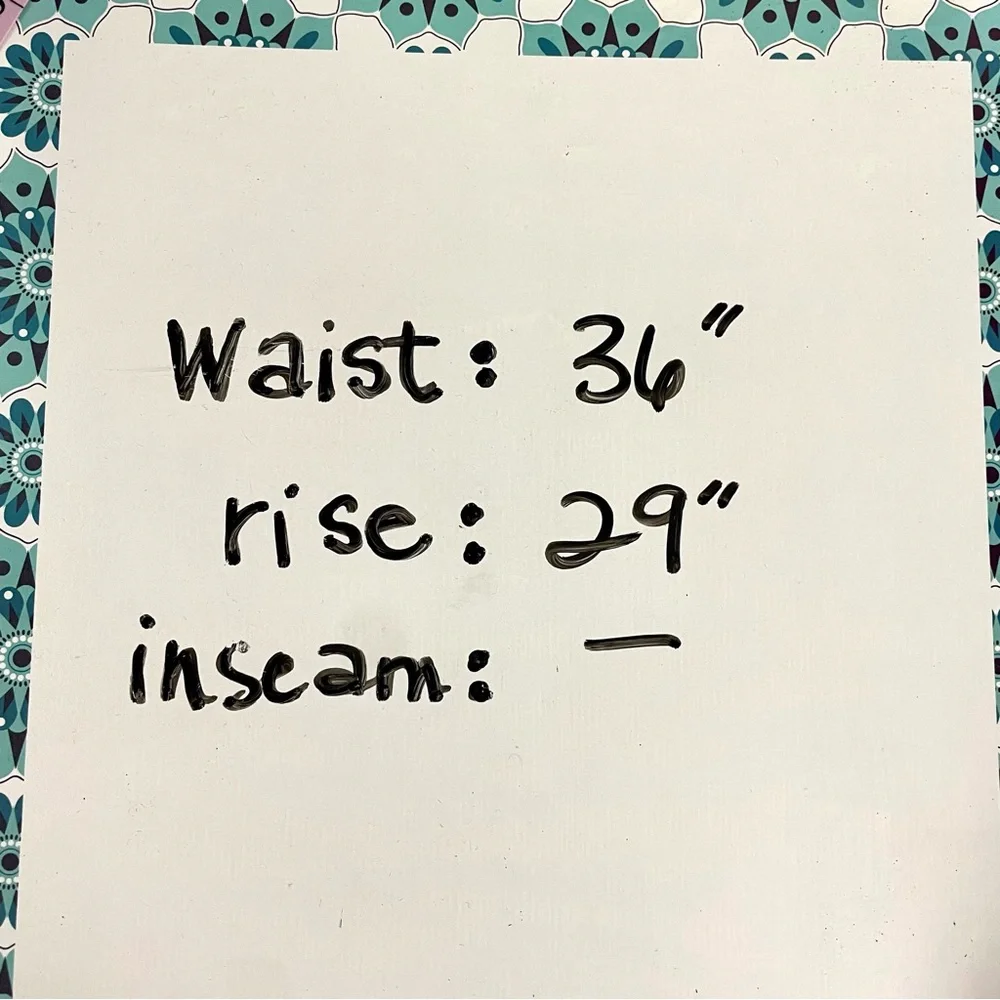 Waist: 36"
rise: 29"
inseam: —